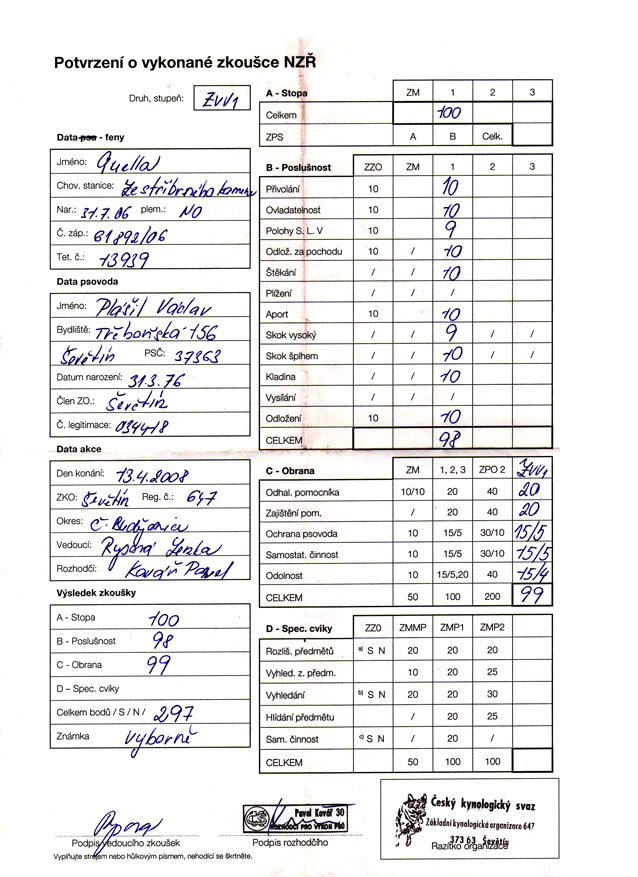 Potvrzení o vykonané zkoušce NZŘ
Druh, stupeň: ZVV1
Data psa - feny
Jméno: Quella
Chov. stanice: Ze stříbrného kamene
Nar.: 31.7.06 plem.: NO
Č. záp.: 61892/06
Tet. č.: 13939
Data psovoda
Jméno: Plášil Václav
Bydliště: Třeboňská 156
Ševětín PSČ: 37363
Datum narození: 31.3.76
Člen ZO.: Ševětín
Č. legitimace: 034418
Data akce
Den konání: 13.4.2008
ZKO: Ševětín Reg. č.: 647
Okres: Č. Budějovice
Vedoucí: Lenka
Rozhodčí: Kovář Pavel
Výsledek zkoušky
A - Stopa 100
B - Poslušnost 98
C - Obrana 99
D – Spec. cviky
Celkem bodů / S / N / 297
Známka Výborně
A - Stopa ZM 1 2 3
Celkem 100
ZPS A B Celk.
B - Poslušnost ZZO ZM 1 2 3
Přivolání 10 10
Ovladatelnost 10 10
Polohy S. L. V 10 9
Odlož. za pochodu 10 / 10
Štěkání / / 10
Plížení / / /
Aport 10 10
Skok vysoký / / 9 / /
Skok šplhem / / 10 / /
Kladina / / 10
Vysílání / / /
Odložení 10 10
CELKEM 98
C - Obrana ZM 1, 2, 3 ZPO 2 ZVV1
Odhal. pomocníka 10/10 20 40 20
Zajištění pom. / 20 40 20
Ochrana psovoda 10 15/5 30/10 15/5
Samostat. činnost 10 15/5 30/10 15/5
Odolnost 10 15/5,20 40 15/4
CELKEM 50 100 200 99
D - Spec. cviky ZZ0 ZMMP ZMP1 ZMP2
Rozliš. předmětů a) S N 20 20 20
Vyhled. z. předm. 10 20 25
Vyhledání b) S N 20 20 30
Hlídání předmětu / 20 25
Sam. činnost c) S N / 20 /
CELKEM 50 100 100
Podpis vedoucího zkoušek
Vyplňujte strojem nebo hůlkovým písmem, nehodící se škrtněte.
Pavel Kovář 30
ROZHODČÍ PRO VÝKON PSŮ
Podpis rozhodčího
Český kynologický svaz
Základní kynologická organizace 647
373 63 Ševětín
Razítko organizace